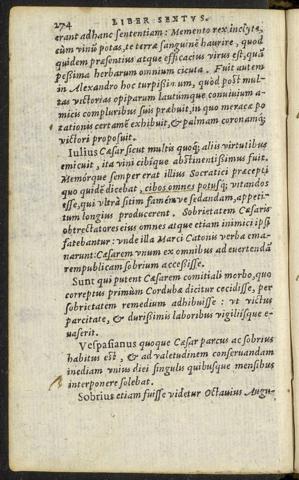 274 LIBER SEXTVS.
erant ad hanc sententiam: Memento rex inclyte,
cùm vinũ potas, te terræ sanguinẽ haurire, quod
quidem præsentius atque efficacius virus est, quã
peßima herbarum omnium cicuta. Fuit autem
in Alexandro hoc turpißimum, quòd post mul-
tas victorias opiparum lautúmque conuiuium a-
micis compluribus suis præbuit, in quo meraca po
tationis certamẽ exhibuit, & palmam coronamq;
victori proposuit.
Iulius Cæsar sicut multis quoq; aliis virtutibus
emicuit, ita vini cibíque abstinentißimus fuit.
Memórque semper erat illius Socratici præcepti
quo quidẽ dicebat, cibos omnes potusq; vitandos
esse, qui vltrà sitim famémve sedandam, appeti-
tum longius producerent. Sobrietatem Cæsaris
obtrectatores eius omnes atque etiam inimici ipsi
fatebantur: vnde illa Marci Catonis verba ema-
narunt: Cæsarem vnum ex omnibus ad euertendã
rempublicam sobrium acceßisse.
Sunt qui putent Cæsarem comitiali morbo, quo
correptus primùm Cordubæ dicitur cecidisse, per
sobrietatem remedium adhibuisse: vt victus
parcitate, & durißimis laboribus vigiliísque e-
uaserit.
Vespasianus quoque Cæsar parcus ac sobrius
habitus est, & ad valetudinem conseruandam
inediam vnius diei singulis quibusque mensibus
interponere solebat.
Sobrius etiam fuisse videtur Octauius Augu-